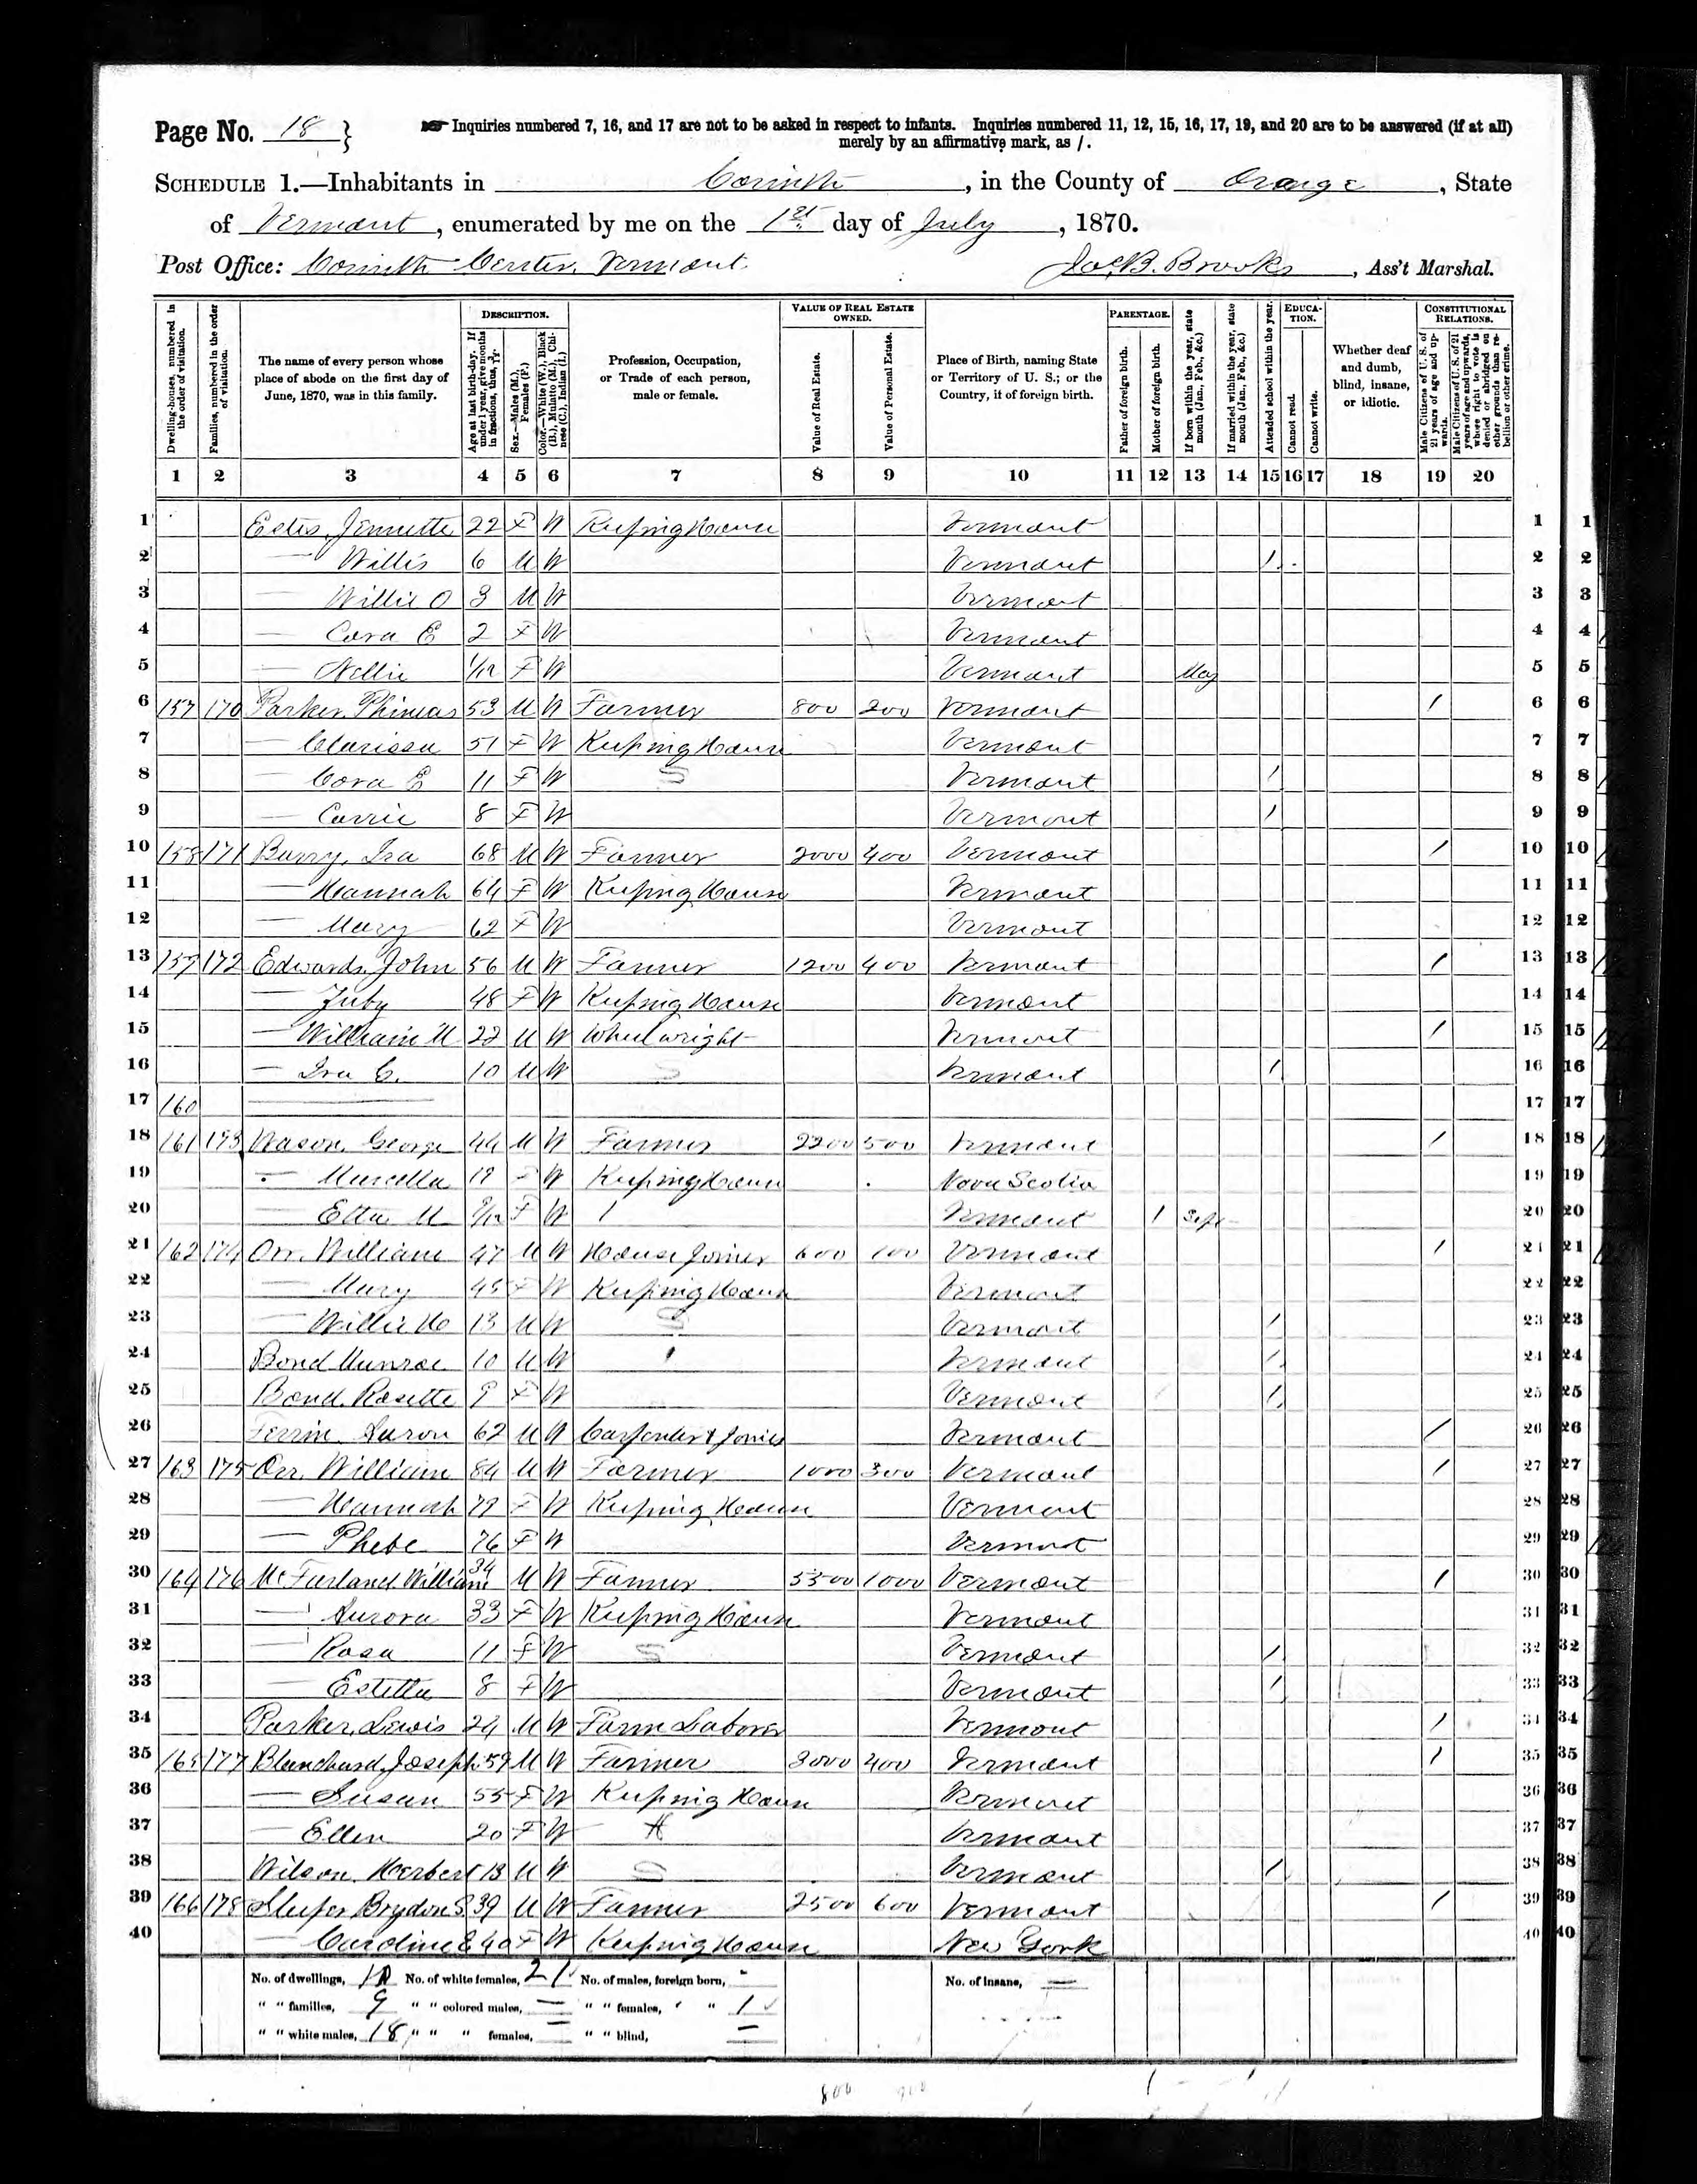 Page No. 18 }
Inquiries numbered 7, 16, and 17 are not to be asked in respect to infants. Inquiries numbered 11, 12, 15, 16, 17, 19, and 20 are to be answered (if at all)
merely by an affirmative mark, as /.
SCHEDULE 1.—Inhabitants in Corinth, in the County of Orange, State
of Vermont, enumerated by me on the 1st day of July, 1870.
Post Office: Corinth Center, Vermont. Jas. B. Brooks, Ass't Marshal.
Dwelling-houses, numbered in the order of visitation.
Families, numbered in the order of visitation.
The name of every person whose place of abode on the first day of June, 1870, was in this family.
DESCRIPTION.
Age at last birth-day. If under 1 year, give months in fractions, thus, 3/12.
Sex.—Males (M.), Females (F.)
Color.—White (W.), Black (B.), Mulatto (M.), Chinese (C.), Indian (I.)
Profession, Occupation, or Trade of each person, male or female.
VALUE OF REAL ESTATE OWNED.
Value of Real Estate.
Value of Personal Estate.
Place of Birth, naming State or Territory of U. S.; or the Country, if of foreign birth.
PARENTAGE.
Father of foreign birth.
Mother of foreign birth.
If born within the year, state month (Jan., Feb., &c.)
If married within the year, state month (Jan., Feb., &c.)
Attended school within the year.
EDUCATION.
Cannot read.
Cannot write.
Whether deaf and dumb, blind, insane, or idiotic.
CONSTITUTIONAL RELATIONS.
Male Citizens of U. S. of 21 years of age and upwards.
Male Citizens of U. S. of 21 years of age and upwards, whose right to vote is denied or abridged on other grounds than rebellion or other crime.
1 2 3 4 5 6 7 8 9 10 11 12 13 14 15 16 17 18 19 20
1 Estes, Jennette 22 F W Keeping House Vermont 1 1
2 — Willis 6 M W Vermont / 2 2
3 — Willie O 3 M W Vermont 3 3
4 — Cora E 2 F W Vermont 4 4
5 — Nellie 1/12 F W Vermont May 5 5
6 157 170 Parker, Phineas 53 M W Farmer 800 200 Vermont / 6 6
7 — Clarissa 51 F W Keeping House Vermont 7 7
8 — Cora E 11 F W S Vermont / 8 8
9 — Carrie 8 F W Vermont / 9 9
10 158 171 Barry, Ira 68 M W Farmer 2000 400 Vermont / 10 10
11 — Hannah 64 F W Keeping House Vermont 11 11
12 — Mary 62 F W Vermont 12 12
13 159 172 Edwards, John 56 M W Farmer 1200 400 Vermont / 13 13
14 — Juby 48 F W Keeping House Vermont 14 14
15 — William M 22 M W Wheelwright Vermont / 15 15
16 — Ira C. 10 M W S Vermont / 16 16
17 160 — 17 17
18 161 173 Wason, George 44 M W Farmer 2200 500 Vermont / 18 18
19 — Marcella 19 F W Keeping House Nova Scotia 19 19
20 — Etta M 9/12 F W Vermont / Sept 20 20
21 162 174 Orr, William 47 M W House Joiner 600 100 Vermont / 21 21
22 — Mary 45 F W Keeping House Vermont 22 22
23 — Willie H 13 M W S Vermont / 23 23
24 Bond Munroe 10 M W Vermont / 24 24
25 Bond, Rosette 9 F W Vermont / 25 25
26 Ferrin, Aaron 62 M W Carpenter & Joiner Vermont / 26 26
27 163 175 Orr, William 84 M W Farmer 1000 300 Vermont / 27 27
28 — Hannah 79 F W Keeping House Vermont 28 28
29 — Phebe 76 F W Vermont 29 29
30 164 176 McFarland William 34 M W Farmer 5500 1000 Vermont / 30 30
31 — Aurora 33 F W Keeping House Vermont 31 31
32 — Rosa 11 F W S Vermont / 32 32
33 — Estella 8 F W Vermont / 33 33
34 Parker, Lewis 24 M W Farm Laborer Vermont / 34 34
35 165 177 Blanchard, Joseph 59 M W Farmer 3000 400 Vermont / 35 35
36 — Susan 55 F W Keeping House Vermont 36 36
37 — Ellen 20 F W Vermont 37 37
38 Wilson, Herbert 13 M W S Vermont / 38 38
39 166 178 Sleeper Brydon S. 39 M W Farmer 2500 600 Vermont / 39 39
40 — Caroline E 40 F W Keeping House New York 40 40
No. of dwellings, 10 No. of white females, 21 No. of males, foreign born, - No. of insane, —
" " families, 9 " " colored males, — " " females, " " 1
" " white males, 18 " " " females, — " " blind, —
800